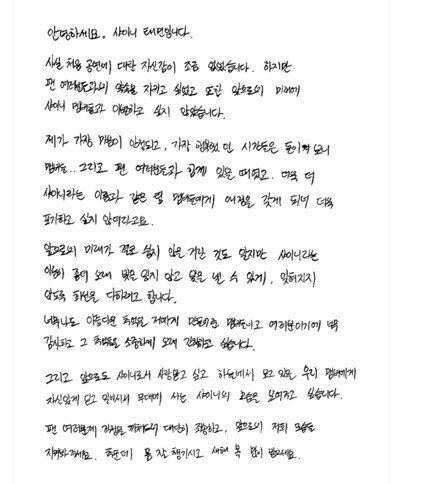 안녕하세요. 샤이니 태민입니다.
사실 처음 공연에 대한 자신감이 조금 없었습니다. 하지만
팬 여러분들과의 약속을 지키고 싶었고 또한 앞으로의 미래에
샤이니 멤버들과 이별하고 싶지 않았습니다.
제가 가장 마음이 안정되고, 가장 행복했던 시간들은 돌이켜 보니
멤버들.. 그리고 팬 여러분들과 함께 있을 때였고. 더욱 더
샤이니라는 이름과 같은 팀 멤버들에게 애정을 갖게 되어 더욱
포기하고 싶지 않더라고요.
앞으로의 미래가 결코 쉽지 않을 거란 것도 알지만 샤이니라는
이름이 좀더 오래 빛을 잃지 않고 빛을 낼 수 있게, 잊혀지지
않도록 최선을 다하려고 합니다.
너무나도 아름다운 추억을 저에게 만들어준 멤버들이고 여러분이기에 너무
감사하고 그 추억들을 소중하게 오래 간직하고 싶습니다.
그리고 앞으로도 샤이니로서 사랑받고 싶고 하늘에서 보고 있을 우리 멤버에게
자신있게 믿고 있어서의 무대에 서는 샤이니의 모습을 보여주고 싶습니다.
팬 여러분께 걱정을 끼쳐드려 대단히 죄송하고, 앞으로의 저희 모습을
지켜봐주세요. 추운데 몸 잘 챙기시고 새해 복 많이 받으세요.